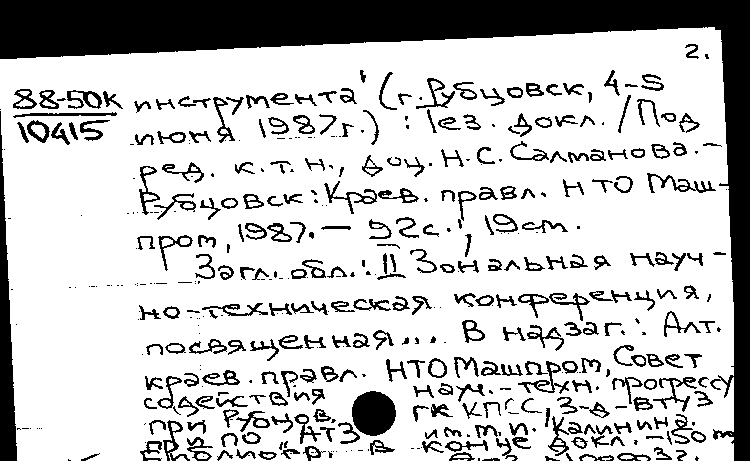 2.
88-50к инструмента" (г. Рубцовск, 4-5
10415 июня 1987г.) : Тез. докл. / Под
ред. к.т.н., доц. Н.С. Салманова. -
Рубцовск: Краев. правл. НТО Маш-
пром, 1987. — 92с.; 19см.
Загл. обл.: II Зональная науч-
но-техническая конференция,
посвященная... В надзаг.: Алт.
краев. правл. НТО Машпром, Совет
содействия науч.-техн. прогрессу
при Рубцов. ГК КПСС, З-д-ВТУЗ
при ПО "АТЗ им. М.И. Калинина.
Библиогр. в конце докл. - 150